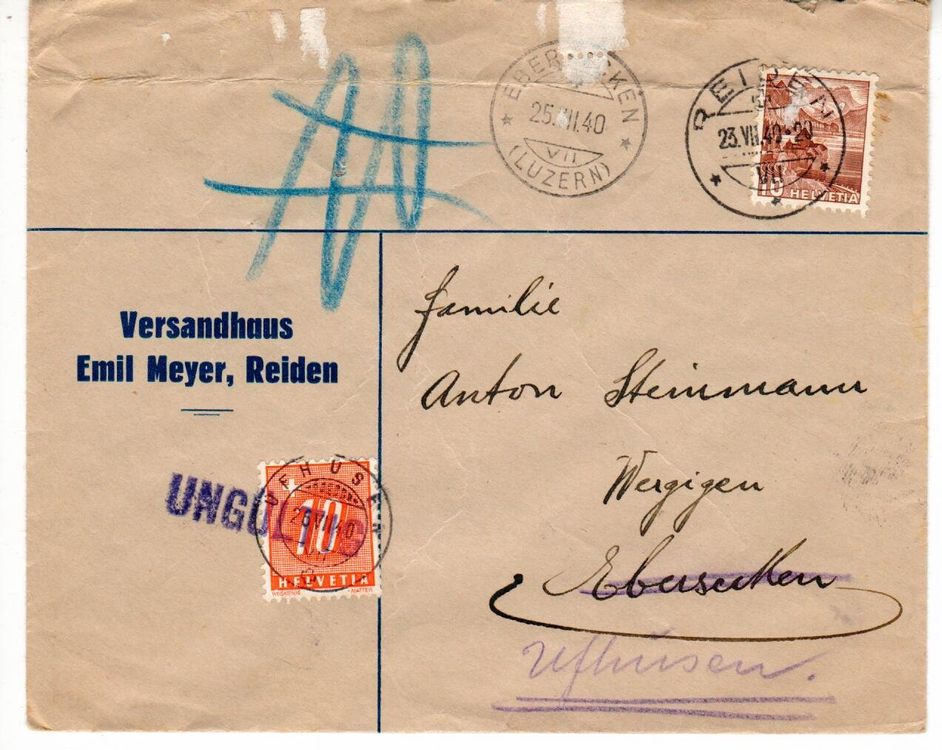 EBERSECKEN
25.VII.40
VII
(LUZERN)
REIDEN
23.VII.40-20
VII
10
HELVETIA
Versandhaus
Emil Meyer, Reiden
Familie
Anton Steinmann
Wergigen
Ebersecken
Ufhusen.
UNGÜLTIG
UFHUSEN
VII.40
10
HELVETIA